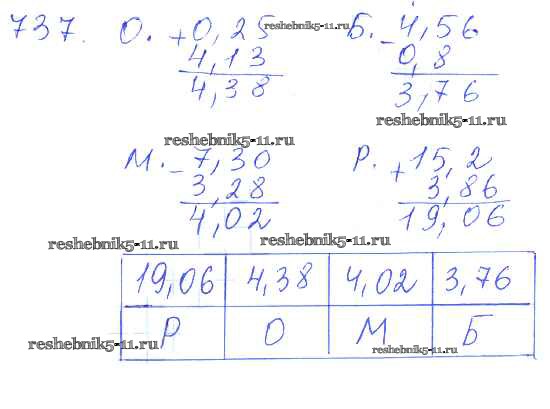 737. О. +0,25 Б. -4,56
4,13 0,8
4,38 3,76
reshebnik5-11.ru
reshebnik5-11.ru
reshebnik5-11.ru
М. -7,30 Р. +15,2
3,28 3,86
4,02 19,06
reshebnik5-11.ru
reshebnik5-11.ru
19,06 4,38 4,02 3,76
Р О М Б
reshebnik5-11.ru
reshebnik5-11.ru